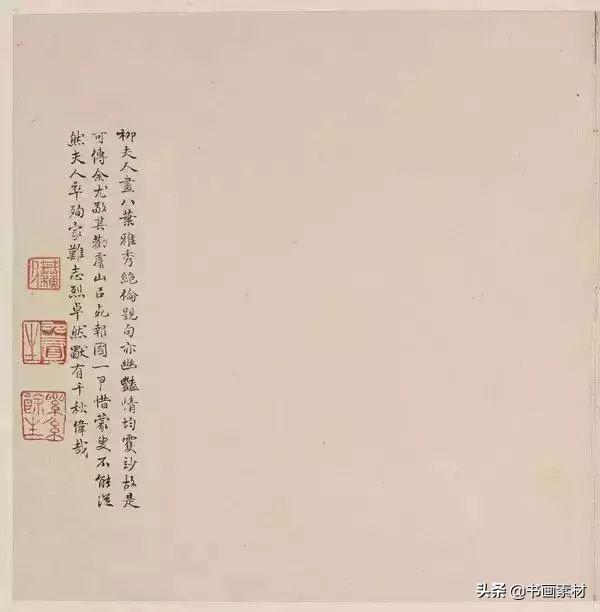 柳夫人畫八葉雅秀絕倫題句亦幽豔情均雙妙故是
可傳余尤敬其勸虞山以死報國一事惜蒙叟不能從
然夫人卒殉家難志烈卓然有千秋偉哉
头条 @书画素材